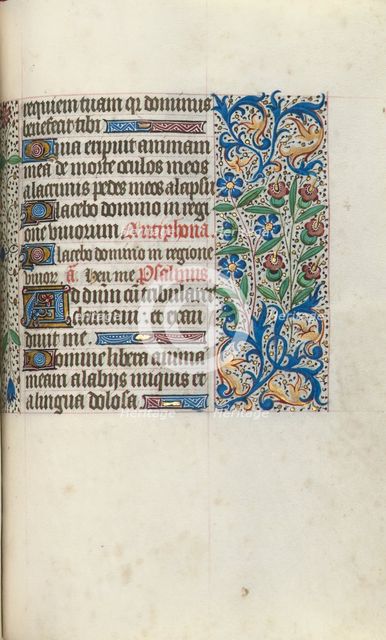 requiem tuam qr dominus
benefecit tibi
Quia eripuit animam
mea de morte oculos meos
a lacrimis pedes meos a lapsu
Placebo domino in regi
one viuorum Antiphona
Placebo domino in regione
viuor a. Heu me Psalmus
Ad dnm cu tribularer
clamaui et exau
diuit me
Domine libera anima
meam a labijs iniquis et
a lingua dolosa
Heritage
Heritage